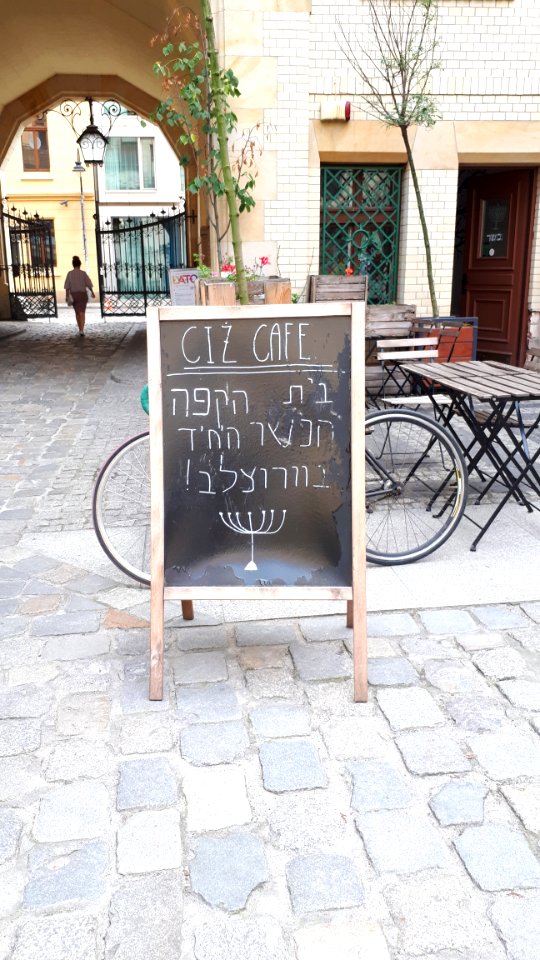 CIŻ CAFE
בית הקפה
הכשר היחיד
בוורוצלב!
DATO